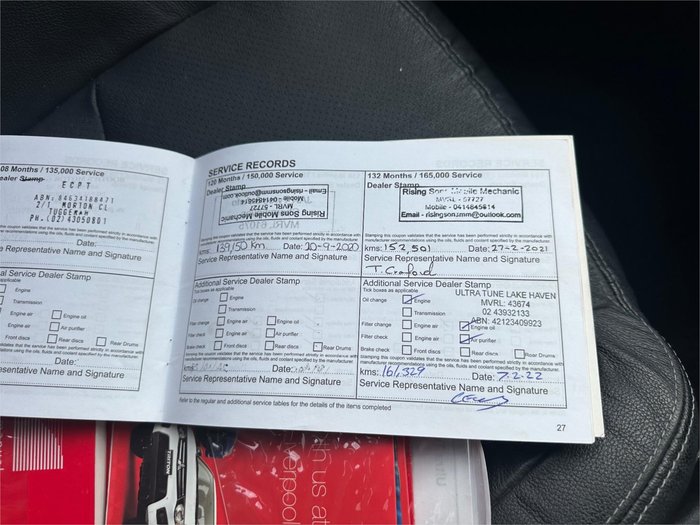 08 Months / 135,000 Service
Dealer Stamp
ECPT
ABN: 84634188471
2/1 MORTON CL
TUGGERAH
PH.(02)43050801
Stamping this coupon validates that the service has been performed strictly in accordance with
manufacturer recommendations using the oils, fluids and coolant specified by the manufacturer.
Date:
Service Representative Name and Signature
Additional Service Dealer Stamp
Tick boxes as applicable
Engine
Transmission
Engine air
Engine oil
Engine air
Air purifier
Front discs
Rear discs
Rear Drums
Date:
Service Representative Name and Signature
SERVICE RECORDS
120 Months / 150,000 Service
Dealer Stamp
Rising Sons Mobile Mechanic
MVRL - 57727
Mobile - 0414845814
Email - risingsonsmm@outlook.com
Stamping this coupon validates that the service has been performed strictly in accordance with
manufacturer recommendations using the oils, fluids and coolant specified by the manufacturer.
kms: 139150 km Date: 10-9-2020
Service Representative Name and Signature
Additional Service Dealer Stamp
Tick boxes as applicable
Oil change Engine
Transmission
Filter change Engine air Engine oil
Filter check Engine air Air purifier
Brake check Front discs Rear discs Rear Drums
Stamping this coupon validates that the service has been performed strictly in accordance with
manufacturer recommendations using the oils, fluids and coolant specified by the manufacturer.
kms: Date:
Service Representative Name and Signature
Refer to the regular and additional service tables for the details of the items completed
132 Months / 165,000 Service
Dealer Stamp
Rising Sons Mobile Mechanic
MVRL - 57727
Mobile - 0414845814
Email - risingsonsmm@outlook.com
Stamping this coupon validates that the service has been performed strictly in accordance with
manufacturer recommendations using the oils, fluids and coolant specified by the manufacturer.
kms: 152,501 Date: 27-2-2021
Service Representative Name and Signature
T. Craford
Additional Service Dealer Stamp
Tick boxes as applicable
ULTRA TUNE LAKE HAVEN
Oil change Engine
MVRL: 43674
Transmission
02 43932133
ABN: 42123409923
Filter change Engine air Engine oil
Filter check Engine air Air purifier
Brake check Front discs Rear discs Rear Drums
Stamping this coupon validates that the service has been performed strictly in accordance with
manufacturer recommendations using the oils, fluids and coolant specified by the manufacturer.
kms: 161,329 Date: 7.2.22
Service Representative Name and Signature
27
TRITON
th us at
erpool